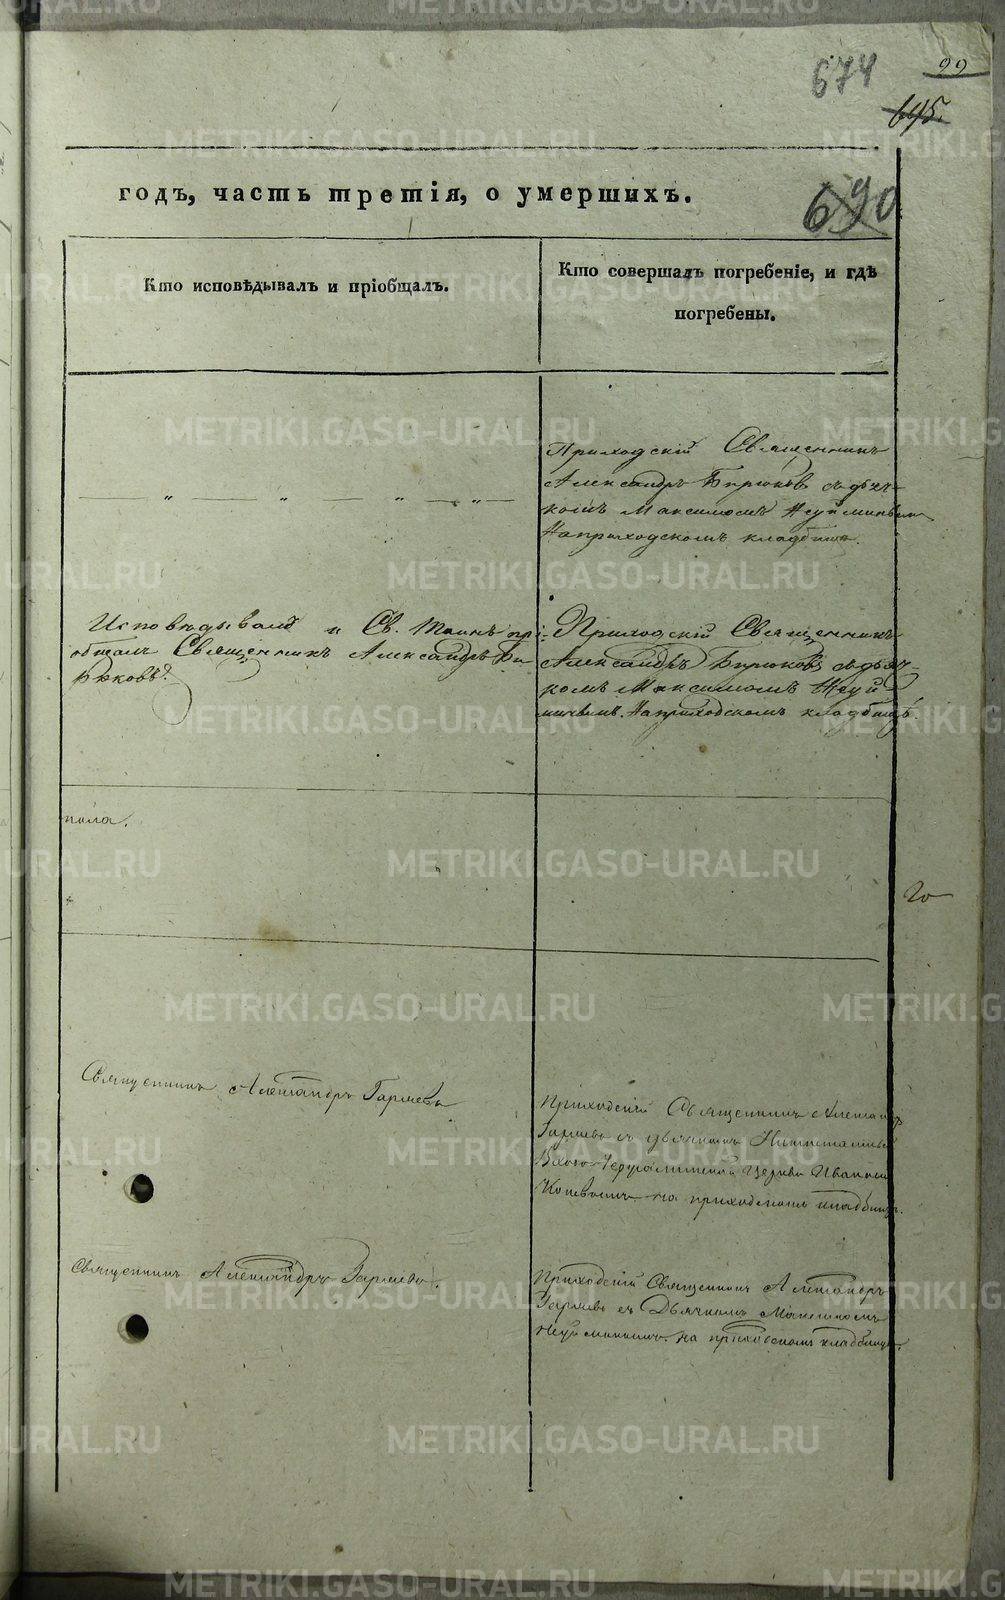 674
99
695.
690
годъ, часть третія, о умершихъ.
Кто исповѣдывалъ и пріобщалъ.
Кто совершалъ погребеніе, и гдѣ
погребены.
Приходскій Священникъ
Александръ Бирюковъ съ дьяч-
комъ Максимомъ Неуйминымъ
На приходскомъ кладбищѣ.
Исповѣдывалъ и Св. Таинъ прі-
общалъ Священникъ Александръ Би-
рюковъ.
Приходскій Священникъ
Александръ Бирюковъ съ дьяч-
комъ Максимомъ Неуй-
минымъ. На приходскомъ кладбищѣ.
пола.
20
Священникъ Александръ Гаряевъ
Приходскій Священникъ Александръ
Гаряевъ съ дьячкомъ
Входо-Іерусалимской Церкви Иваномъ
на приходскомъ кладбищѣ.
Священникъ Александръ Гаряевъ.
Приходскій Священникъ Александръ
Гаряевъ съ Дьячкомъ Максимомъ
Неуйминымъ на приходскомъ кладбищѣ.
METRIKI.GASO-URAL.RU